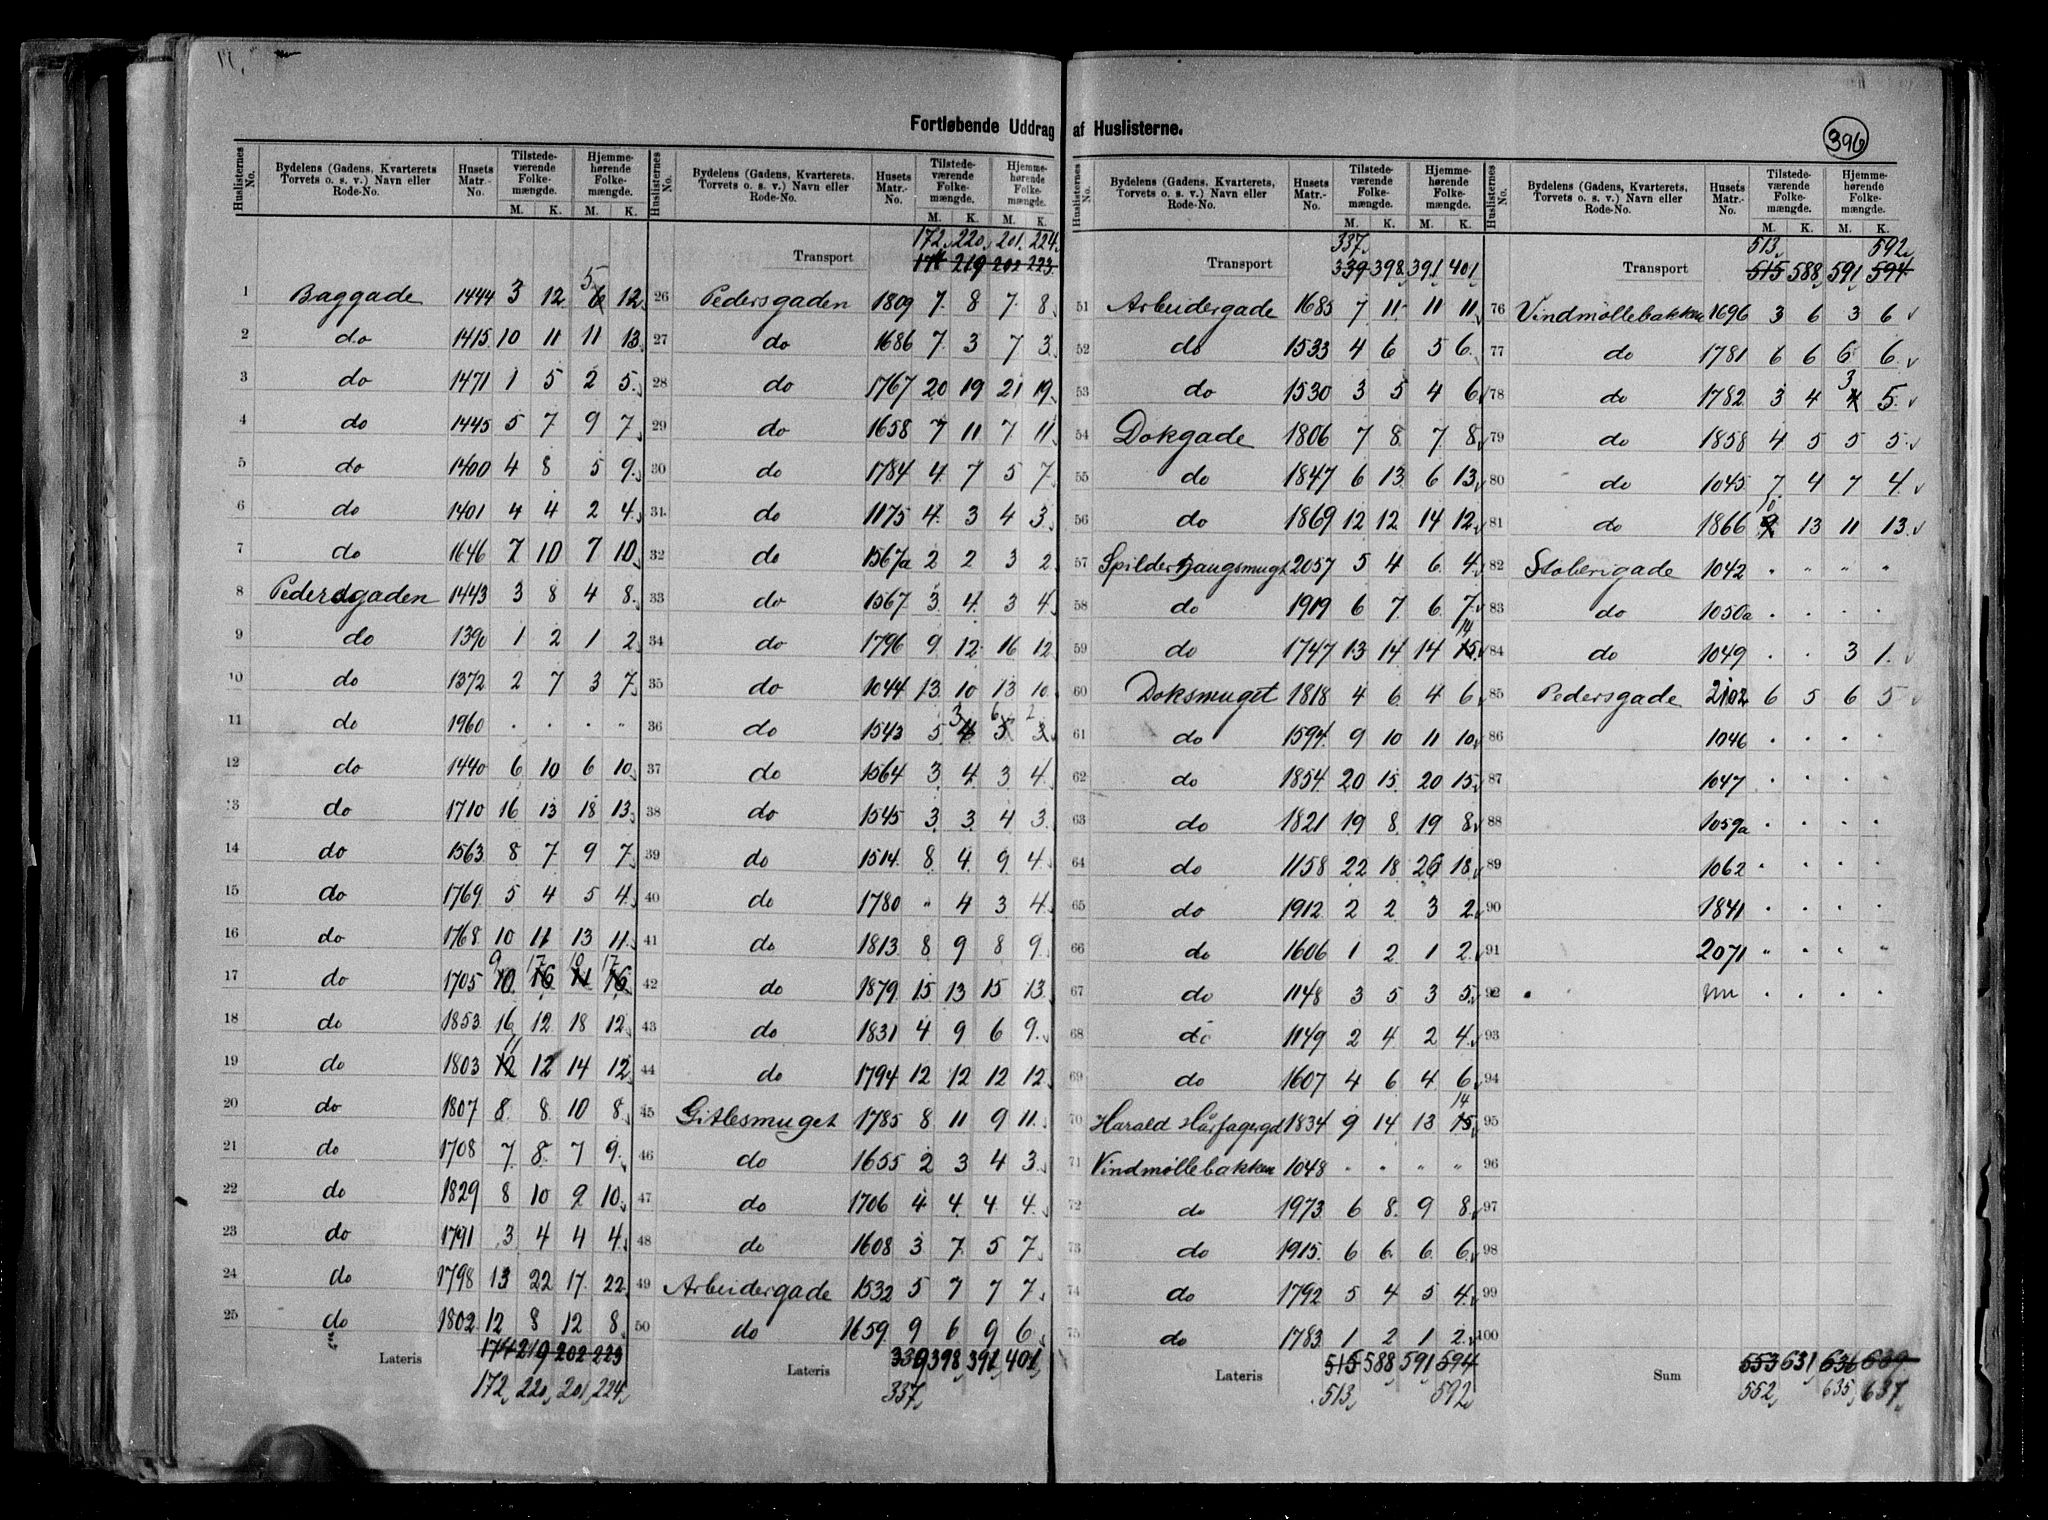 Fortløbende Uddrag af Huslisterne.
396
Huslisternes No. Bydelens (Gadens, Kvarterets Torvets o. s. v.) Navn eller Rode-No. Husets Matr.-No. Tilstedeværende Folkemængde. M. K. Hjemmehørende Folkemængde. M. K.
1 Baggade 1444 3 12 6 5 12
2 do 1415 10 11 11 13
3 do 1471 1 5 2 5
4 do 1445 5 7 9 7
5 do 1400 4 8 5 9
6 do 1401 4 4 2 4
7 do 1646 7 10 7 10
8 Pedersgaden 1443 3 8 4 8
9 do 1390 1 2 1 2
10 do 1372 2 7 3 7
11 do 1960 . . . "
12 do 1440 6 10 6 10
13 do 1710 16 13 18 13
14 do 1563 8 7 9 7
15 do 1769 5 4 5 4
16 do 1768 10 11 13 11
17 do 1705 10 9 16 17 11 10 16 17
18 do 1853 16 12 18 12
19 do 1803 12 11 12 14 12
20 do 1807 8 8 10 8
21 do 1708 7 8 7 9
22 do 1829 8 10 9 10
23 do 1791 3 4 4 4
24 do 1798 13 22 17 22
25 do 1802 12 8 12 8
Lateris 174 219 202 223
172 220 201 224
Huslisternes No. Bydelens (Gadens, Kvarterets. Torvets o. s. v.) Navn eller Rode-No. Husets Matr.-No. Tilstedeværende Folkemængde. M. K. Hjemmehørende Folkemængde. M. K.
172 220 201 224
Transport 174 219 202 223
26 Pedersgaden 1809 7 8 7 8
27 do 1686 7 3 7 3
28 do 1767 20 19 21 19
29 do 1658 7 11 7 11
30 do 1784 4 7 5 7
31 do 1175 4 3 4 3
32 do 1567a 2 2 3 2
33 do 1567 3 4 3 4
34 do 1796 9 12 16 12
35 do 1044 13 10 13 10
36 do 1543 5 4 3 5 6 3 2
37 do 1564 3 4 3 4
38 do 1545 3 3 4 3
39 do 1514 8 4 9 4
40 do 1780 " 4 3 4
41 do 1813 8 9 8 9
42 do 1879 15 13 15 13
43 do 1831 4 9 6 9
44 do 1794 12 12 12 12
45 Gitlesmuget 1785 8 11 9 11
46 do 1655 2 3 4 3
47 do 1706 4 4 4 4
48 do 1608 3 7 5 7
49 Arbeidergade 1532 5 7 7 7
50 do 1659 9 6 9 6
Lateris 339 398 391 401
337
Huslisternes No. Bydelens (Gadens, Kvarterets, Torvets o. s. v.) Navn eller Rode-No. Husets Matr.-No. Tilstedeværende Folkemængde. M. K. Hjemmehørende Folkemængde. M. K.
337
Transport 339 398 391 401
51 Arbeidergade 1685 7 11 11 11
52 do 1533 4 6 5 6
53 do 1530 3 5 4 6
54 Dokgade 1806 7 8 7 8
55 do 1847 6 13 6 13
56 do 1869 12 12 14 12
57 Spilderhaugsmugt 2057 5 4 6 4
58 do 1919 6 7 6 7
59 do 1747 13 14 14 15 14
60 Doksmuget 1818 4 6 4 6
61 do 1594 9 10 11 10
62 do 1854 20 15 20 15
63 do 1821 19 8 19 8
64 do 1158 22 18 26 18
65 do 1912 2 2 3 2
66 do 1606 1 2 1 2
67 do 1148 3 5 3 5
68 do 1149 2 4 2 4
69 do 1607 4 6 4 6
70 Harald Hårfagergd 1834 9 14 13 15 14
71 Vindmøllebakken 1048 " " " "
72 do 1973 6 8 9 8
73 do 1915 6 6 6 6
74 do 1792 5 4 5 4
75 do 1783 1 2 1 2
Lateris 515 588 591 594
513 592
Huslisternes No. Bydelens (Gadens, Kvarterets, Torvets o. s. v.) Navn eller Rode-No. Husets Matr.-No. Tilstedeværende Folkemængde. M. K. Hjemmehørende Folkemængde. M. K.
513 592
Transport 515 588 591 594
76 Vindmøllebakken 1696 3 6 3 6
77 do 1781 6 6 6 6
78 do 1782 3 4 4 3 5
79 do 1858 4 5 5 5
80 do 1045 7 4 7 4
81 do 1866 9 10 13 11 13
82 Støberigade 1042 " " " "
83 do 1050a . . . .
84 do 1049 . . 3 1
85 Pedersgade 2102 6 5 6 5
86 1046 . . . .
87 1047 . . . .
88 1059a . . . .
89 1062 . . . .
90 1841 . . . .
91 2071 " . . "
92 . . . .
93
94
95
96
97
98
99
100
Sum 553 631 636 639
552 635 637